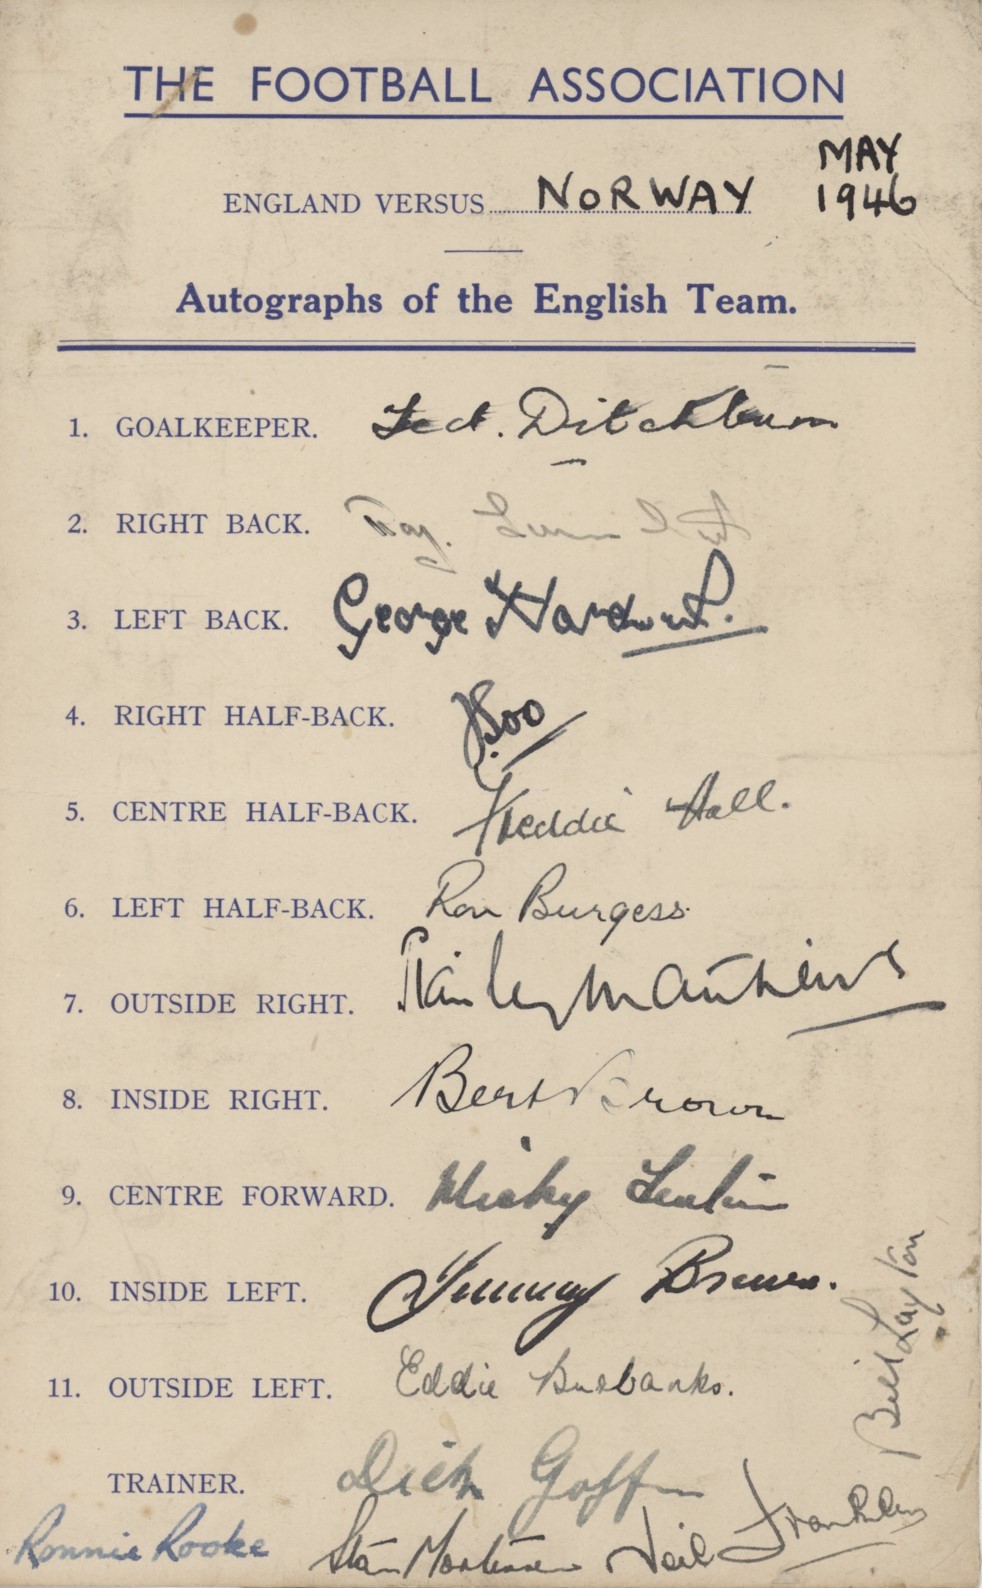 THE FOOTBALL ASSOCIATION
MAY
ENGLAND VERSUS NORWAY 1946
Autographs of the English Team.
1. GOALKEEPER. Ted. Ditchburn
2. RIGHT BACK.
3. LEFT BACK. George Hardwick.
4. RIGHT HALF-BACK.
5. CENTRE HALF-BACK. Freddie Hall.
6. LEFT HALF-BACK. Ron Burgess
7. OUTSIDE RIGHT. Stanley Matthews
8. INSIDE RIGHT. Bert Brown
9. CENTRE FORWARD. Micky Fenton
10. INSIDE LEFT. Jimmy
11. OUTSIDE LEFT. Eddie Burbanks.
Bill Layton
TRAINER. Dick
Ronnie Rooke Stan Mortensen Neil Franklin